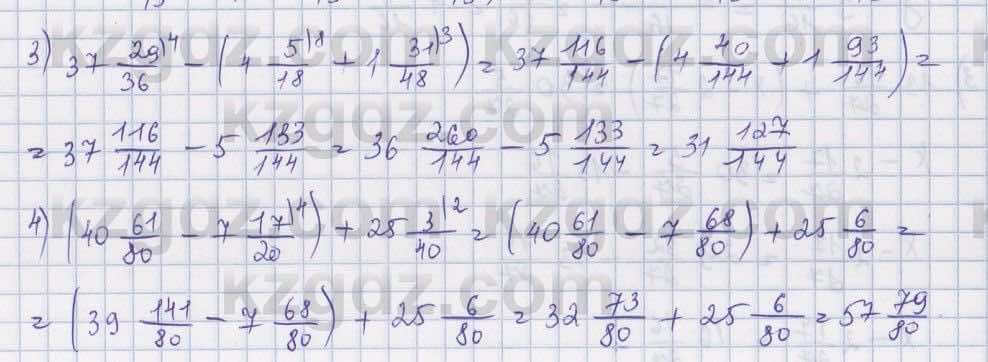 3) 37 29/36 ⁾⁴ − (4 5/18 ⁾⁸ + 1 31/48 ⁾³) = 37 116/144 − (4 40/144 + 1 93/144) =
= 37 116/144 − 5 133/144 = 36 260/144 − 5 133/144 = 31 127/144
4) (40 61/80 − 7 17/20 ⁾⁴) + 25 3/40 ⁾² = (40 61/80 − 7 68/80) + 25 6/80 =
= (39 141/80 − 7 68/80) + 25 6/80 = 32 73/80 + 25 6/80 = 57 79/80